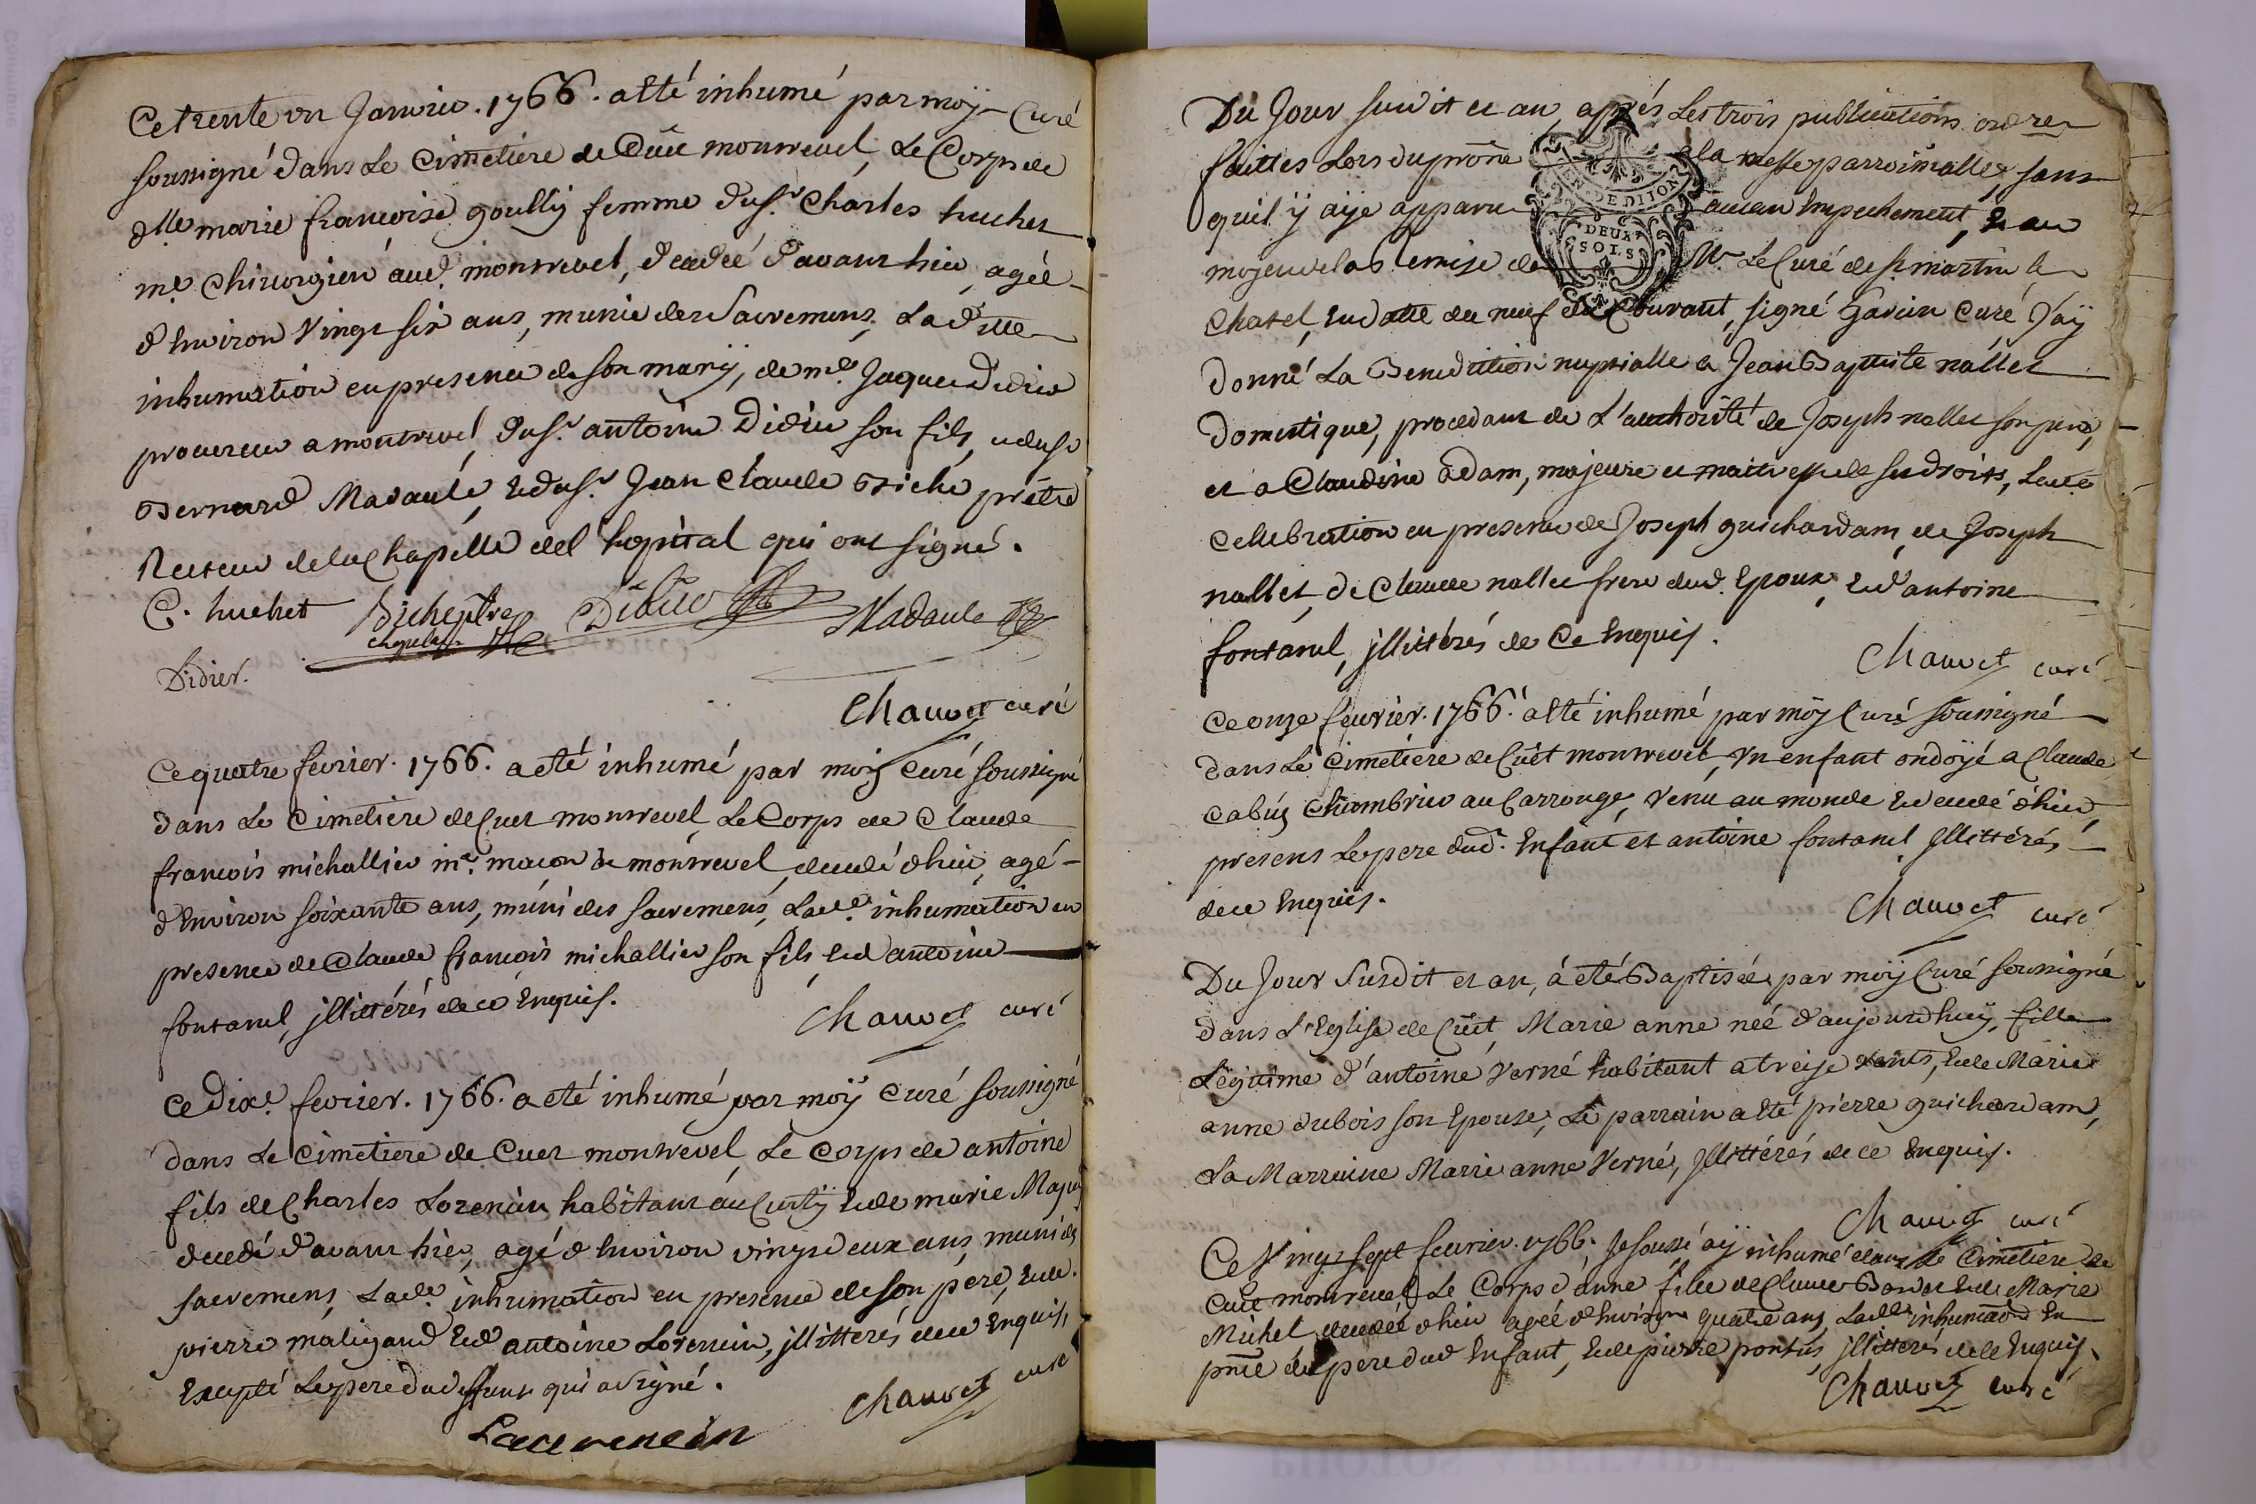 Ce trente un Janvier. 1766. a été inhumé par moÿ Curé
soussigné dans Le Cimetiere de Cuet montrevel, Le Corps de
dlle marie françoise goully femme du sr. Charles huchet
me. Chirurgien aud. montrevel, decedée d'avant hier, agée
d'Environ vingt six ans, munie des Sacremens, Laditte
inhumation en presence de son marÿ, de me. Jaques Didier
procureur a montrevel, du sr. antoine Didier son fils, et du sr
Bernard Madaule, Et du sr. Jean Claude Biché prêtre
Recteur de la Chapelle de l'hopital qui ont signé.
C. huchet Bicheptre Didier Madaule
chapelain
Didier.
Chauvet curé
Ce quatre fevrier. 1766. a eté inhumé par moÿ Curé soussigné
dans Le Cimetiere de Cuet montrevel Le Corps de Claude
françois michallier me. macon de montrevel, decedé d'hier, agé
d'Environ soixante ans, muni des sacremens, Lade. inhumation en
presence de Claude françois michallier son fils, Et d'antoine
fontanel, jllittérés de ce Enquis.
Chauvet curé
Ce dixe. fevrier. 1766. a eté inhumé par moÿ Curé soussigné
dans Le Cimetiere de Cuet montrevel, Le Corps de antoine
fils de Charles Lorencin habitant au Curtÿ Et de marie
decedé d'avant hier, agé d'Environ vingt deux ans, muni des
sacremens, Lade. inhumation en presence de son pere, Et de
pierre maligand Et d'antoine Lorencin, jllitterés de ce Enquis,
Excepté Le pere du deffunt qui a signé.
Chauvet curé
Laurencin
Du Jour susdit et an, après Les trois publications ordres
faittes Lors du prône a la messe parroissialle, sans
qu'il ÿ aÿe apparu aucun Empechement, Et au
moyen de la Remise de Mr. Le Curé de st. martin le
Chatel, En datte du neuf du Courant, signé Gavin Curé J'aÿ
EN EDITION
DEUX
SOLS
donné La Benediction nuptialle a Jean Baptiste nallet
Domestique, procedant de L'authorité de Joseph nallet son pere,
et a Claudine adam, majeure et maitresse de ses droits, Lade
Celebration en presence de Joseph guichardam, de Joseph
nallet, de Claude nallet frere dud. Epoux, Et d'antoine
fontanel, jllittérés de Ce Enquis.
Chauvet curé
Ce onze fevrier. 1766. a eté inhumé par moÿ Curé soussigné
dans Le Cimetiere de Cuet montrevel, un enfant ondoÿé a Claude
Cabuz Chambrier au Carrouge, venu au monde Et decedé d'hier,
presens Le pere dud. Enfant et antoine fontanel jllittérés
de ce Enquis.
Chauvet curé
Du Jour Susdit et an, á eté Baptisée par moÿ Curé soussigné
dans L'Eglise de Cuet, Marie anne née d'aujourdhuÿ, fille
Légitime d'antoine Verné habitant a treize vents, Et de Marie
anne dubois son Epouse; Le parrain a eté pierre guichardam,
La Marraine Marie anne Verné, jllittérés de ce Enquis.
Chauvet curé
Ce Vingt sept fevrier. 1766. Je soussé. aÿ inhumé dans Le Cimetiere de
Cuet montrevel Le Corps d'anne fille de Claude Et de Marie
Michel decedée d'hier agée d'Environ quatre ans, Lade. inhumaon En
pnce du pere dud Enfant, Et de pierre pontus, jllitterés de ce Enquis.
Chauvet curé